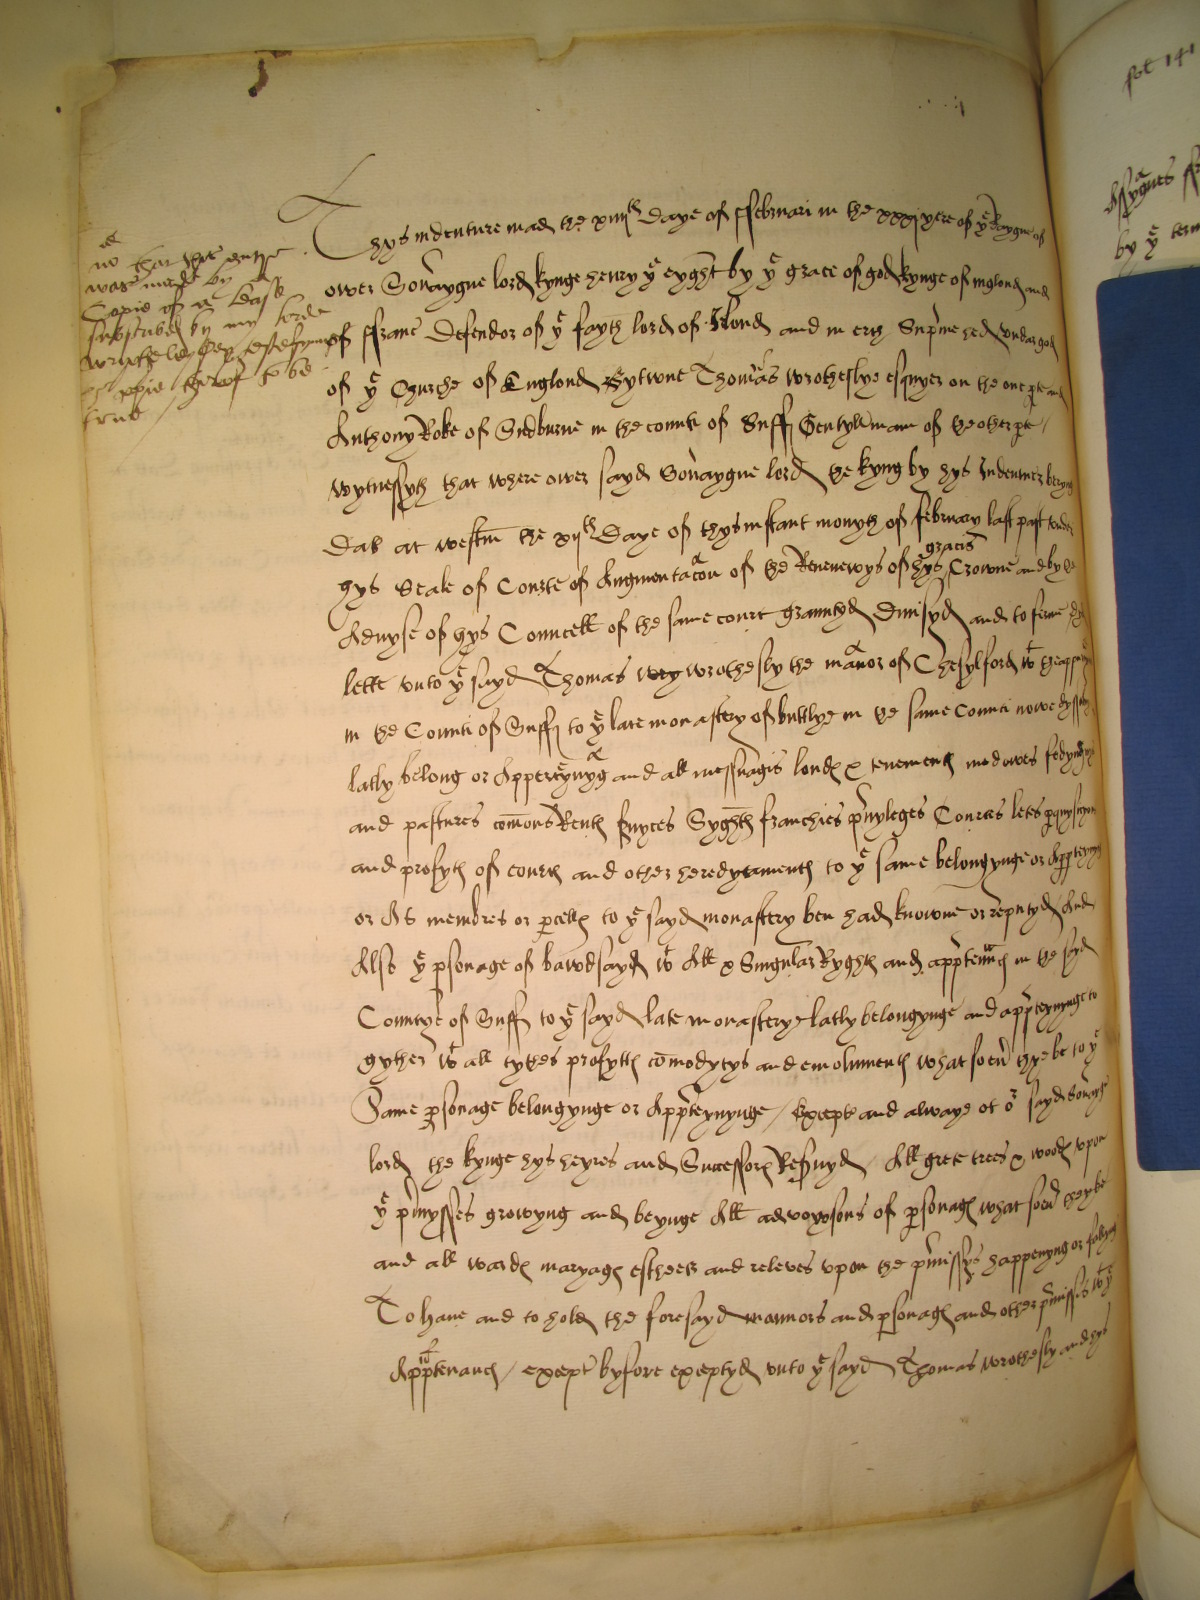 that this entre
was made by a
Copie of a Lease
subscribed by my lord
wrytheley
copie therof to be
true
Thys indenture mad the xiiijth Daye of ffebruari in the xxxj yere of ye Raygne of
ower Souaygne lord kynge henry ye eyght by ye grace of god kynge of inglond and
of ffranc Defendor of ye fayth lord of Ilond and in erth Supme hed vndar god
of ye Churche of Englond Bytwne Thomas wrotheslye esquyer on the one pte and
Anthony Roke of Sudburne in the counte of Suff Gentylman of the other pte
wytnessyth that where ower sayd Souaygne lord the kyng by hys Indentures beryng
Dat at westm the xijth Daye of thys instant monyth of february last past vnder
hys Seale of Courte of Augmentacon of the Reuenewys of hys gracis Crowne and by the
Aduyse of hys Councell of the same court grauntyd Dimisyd and to ferme
lette vnto ye sayd Thomas wrothesly the manor of Chesylford wt
in the Counti of Suff to ye late monastery of buttlye in the same Counti nowe
latly belong or Apperteynyng and all messuagis londes & tenementes medowes fedynges
and pastures comons Rentes suyces franchies puyleges Courtes letes
and profytes of courtes and other heredytamentes to ye same belongynge or Appteynyng
or As membres or pcelles to ye sayd monastery ben had knowne or reputyd And
Also ye psonage of bawdsayd wt All & Singular Ryghtes and apptennces in the sayd
Countye of Suff to ye sayd late monasterye latly belongynge and appteynynge to
gyther wt all tythes profyttes comodytys and emolumentes what soeu they be to ye
Same psonage belongynge or Appteynynge / Except and alwaye ot or sayd Souaygne
lord the kynge hys heyres and Successors Resuyd All grete trees & woodes vpon
ye pmysses growyng and beynge All advowsons of psonages what soeu they be
and all wardes maryages esthetes and releves vpon the pmissys happenyng or fallyng
To haue and to hold the foresayd mannors and psonages and other pmissis wt ye
Apptenances / except byfore exceptyd vnto ye sayd Thomas wrothesly and hys
fol 141
Assygnes
by ye term